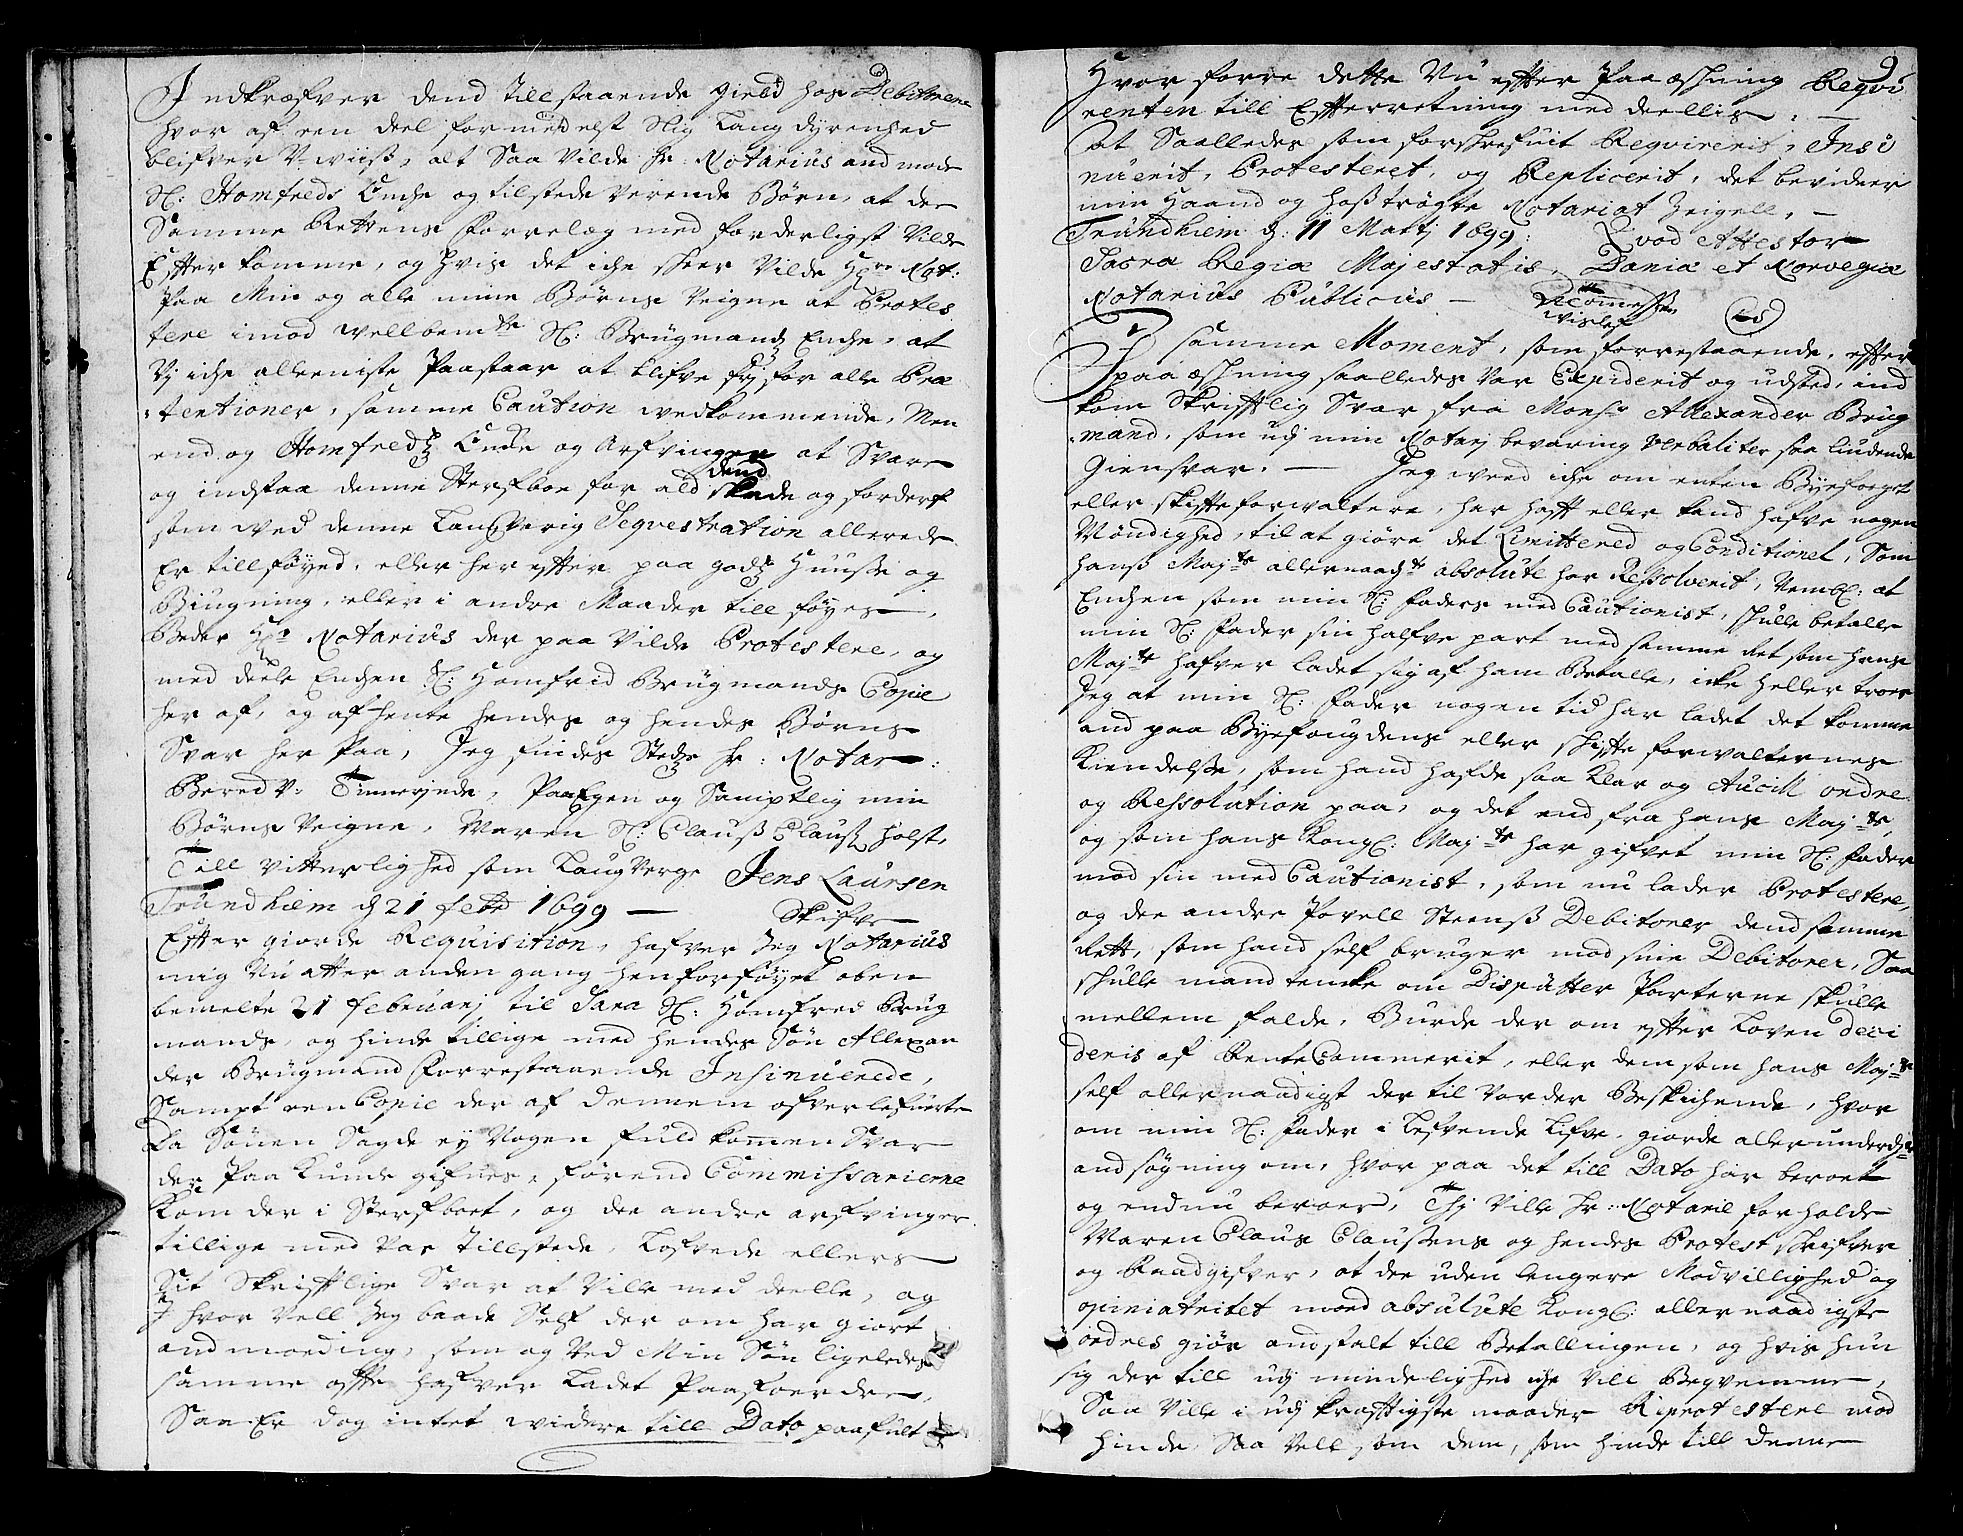 Indkræfver dend tillstaaende gield hos Debitorerne
hvor af een deel formedelst slig Lang dyrenhed
blifver V-wiiss, alt Saa Vilde Hr Notarius andmode
Sl: Homfreds Enche og tilstede verende Børn, at de
Samme Rettens forrelæg med forderligst Vilde
Efterkomme, og hvis det iche skeer Vilde Hr Not:
Paa Min og alle mine Børns Veigne at Protes
tere imod wellbemte Sl: Brügmands Enche, at
Vj iche alleeniste Paastaar at blifve fri for alle Præ
tentioner, samme Caution wedkommende, Men
end og Homfreds Enche og Arfvinger at Svare
og indstaa denne Sterfboe for ald dend skade og forderf
som wed denne Langvarig Seqvestration allerede
Er tillføyed, eller her efter paa gods Huusse og
Biugning, eller i andre Maader till føyes,
Beder Hr Notarius der paa Vilde Protestere, og
med deele Enchen Sl: Homfrid Brügmands Copie
her af, og af hente hendes og hendes Børns
Svar her Paa, Jeg findes Stedse Hr: Notar:
Bered V: Tienneriude, Paa Egen og Samptlig min
Børns Veigne, Maren Sl: Clauss Clauss: Holst.
Till vitterlighed som Laugverge Jens Laursen
Trundhiem d 21 febr 1699 — Skifve
Efter giorde Requisition, hafver Jeg Notarius
mig Nu atter anden gang henforføyet oben
bemelte 21 februarj til Sara Sl: Homfred Brüg
mands, og hinde tillige med hendes Søn Allexan
der Brügmand forrestaaende Insinuerede,
Sampt een Copie der af dennem ofverlefuerte
Da Sønen Sagde ey Nogen fuldkomen Svar
der Paa Kunde gifues, førend Commissarierne
Kom der i Sterfboet, og de andre arfvinger
tillige med Var tillstede, Lofvede ellers
Sit Skrifftlige Svar at Ville meddeelle, og
I hvor Vell Jeg baade Self der om har giort
andmoeding, som og Ved Min Søn ligeledes
samme offte hafver Ladet Paafordre,
Saa Er dog intet widere till Dato paafult
9
Hvorforre dette Nu efter Paaæskning Reqvi
renten till Efterretning meddeelles. —
At Saalledes som forskrefuit Reqvirerit, Insi
nuerit, Protesteret, og Replicerit, det bevidner
min Haand og hosstrøgte Notariat Zeigell, —
Trundhiem d: 11 Martj 1699: Qvod Attestor
Sacra Regiæ Majestatis, Daniæ et Norvegiæ
Notarius Publicus —
I samme Moment, som forrestaaende, efter
paaæskning saalledes var Expiderit og udsted, ind
kom Skrifftlig Svar fra Monsr Allexander Brüg
mand, som udj min Notarj bevaring verbaliter saa liudende
Giensvar. — Jeg weed iche om enten Byefoeget
eller skifteforwaltere, har hafft eller kand hafve nogen
Møndighed, til at giøre det Limittered og Conditionel, Som
hans Majts allernaadgte absolute har Ressolverit, Nemlig: at
Enchen som min Sl: Faders med Cautionist, skulle betalle
min Sl: Fader sin halfve part med samme ret som hans
Majts hafver ladet sig af ham Betalle, icke heller troer
Jeg at min Sl: Fader nogen tid har ladet det komme
and paa Byefougdens eller skifteforwalternes
Kiendelse, som hand hafde saa klar og Aucill ordre
og Ressolution paa, og det end fra hans Majts,
og som hans Kongl: Majts har gifvet min Sl: Fader
mod sin med Cautionist, som nu lader Protestere,
og de andre Povell Steenss Debitorer dend samme
rett, som hand self bruger mod sine Debitorer, Saa
skulle mand tencke om Disputter Parterne skulle
mellem falde, Burde der om efter Loven Deci
deris af RenteCammerit, eller dem som hans Majts
self allernaadigst der til Vorder Beskichende, hvor
om min Sl: Fader i lefvende Lifve, giorde allerunderdgt
andsøgning om, hvor paa det till Dato har beroet
og endnu beroer, Thj Ville Hr: Notarie forholde
Maren Claus Claussens og hendes Protest skrifver
og Raadgifver, at de uden lengere Modvillighed og
opiniatritet med absulute Kongl: allernaadigste
ordres giør andstalt till Betallingen, og hvis hun
sig der till udj mindelighed iche Vill Beqvemme,
Saa Ville i udj krafftigste maader Reprotestere mod
hinde, Saa Vell som dem, som hinde till denne